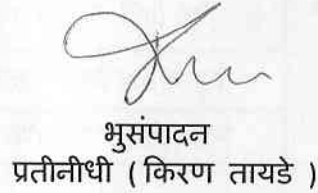 भुसंपादन
प्रतीनीधी ( किरण तायडे )